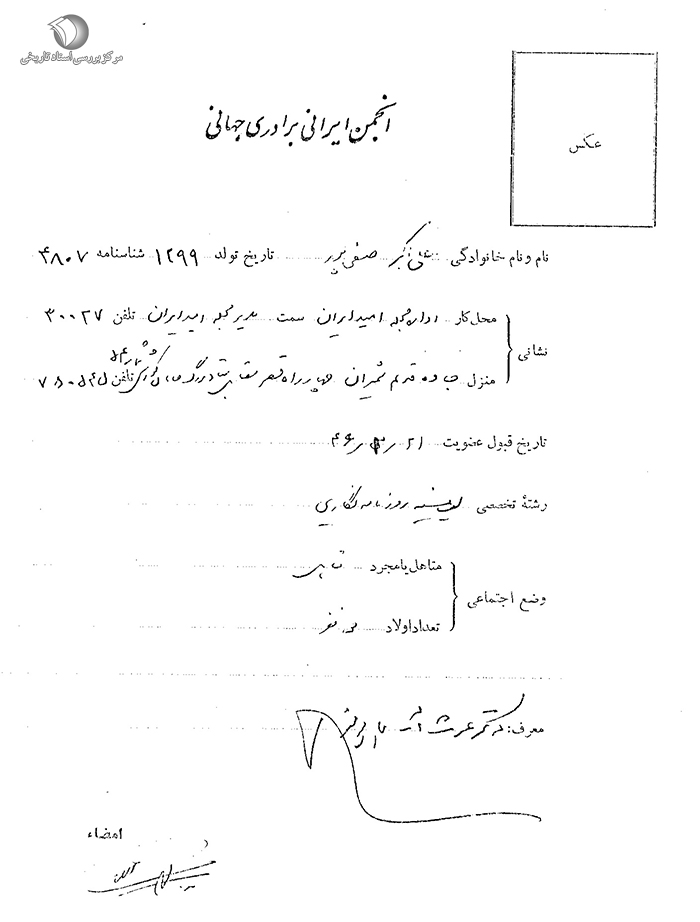 مرکز بررسی اسناد تاریخی
انجمن ایرانی برادری جهانی
عکس
نام و نام خانوادگی علی اکبر صفی پور تاریخ تولد ۱۲۹۹ شناسنامه ۴۸۰۷
نشانی
محل کار اداره مجله امید ایران سمت مدیر مجله امید ایران تلفن ۳۰۰۲۷
منزل جاده قدیم شمیران چهارراه قصر مقابل تلفن
تاریخ قبول عضویت ۲۱ ر ر ۴۶
رشتهٔ تخصصی لیسانسیه روزنامه نگاری
وضع اجتماعی
متاهل یا مجرد متاهل
تعداد اولاد نفر
معرف: دکتر عزت اله
امضاء